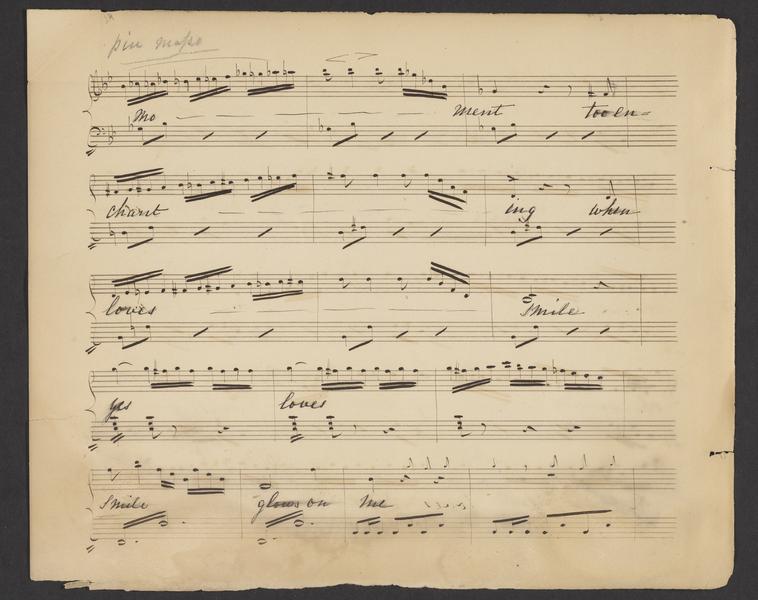 piu mosso
mo ment too en=
chant ing when
loves smile
yes loves
smile glows on me